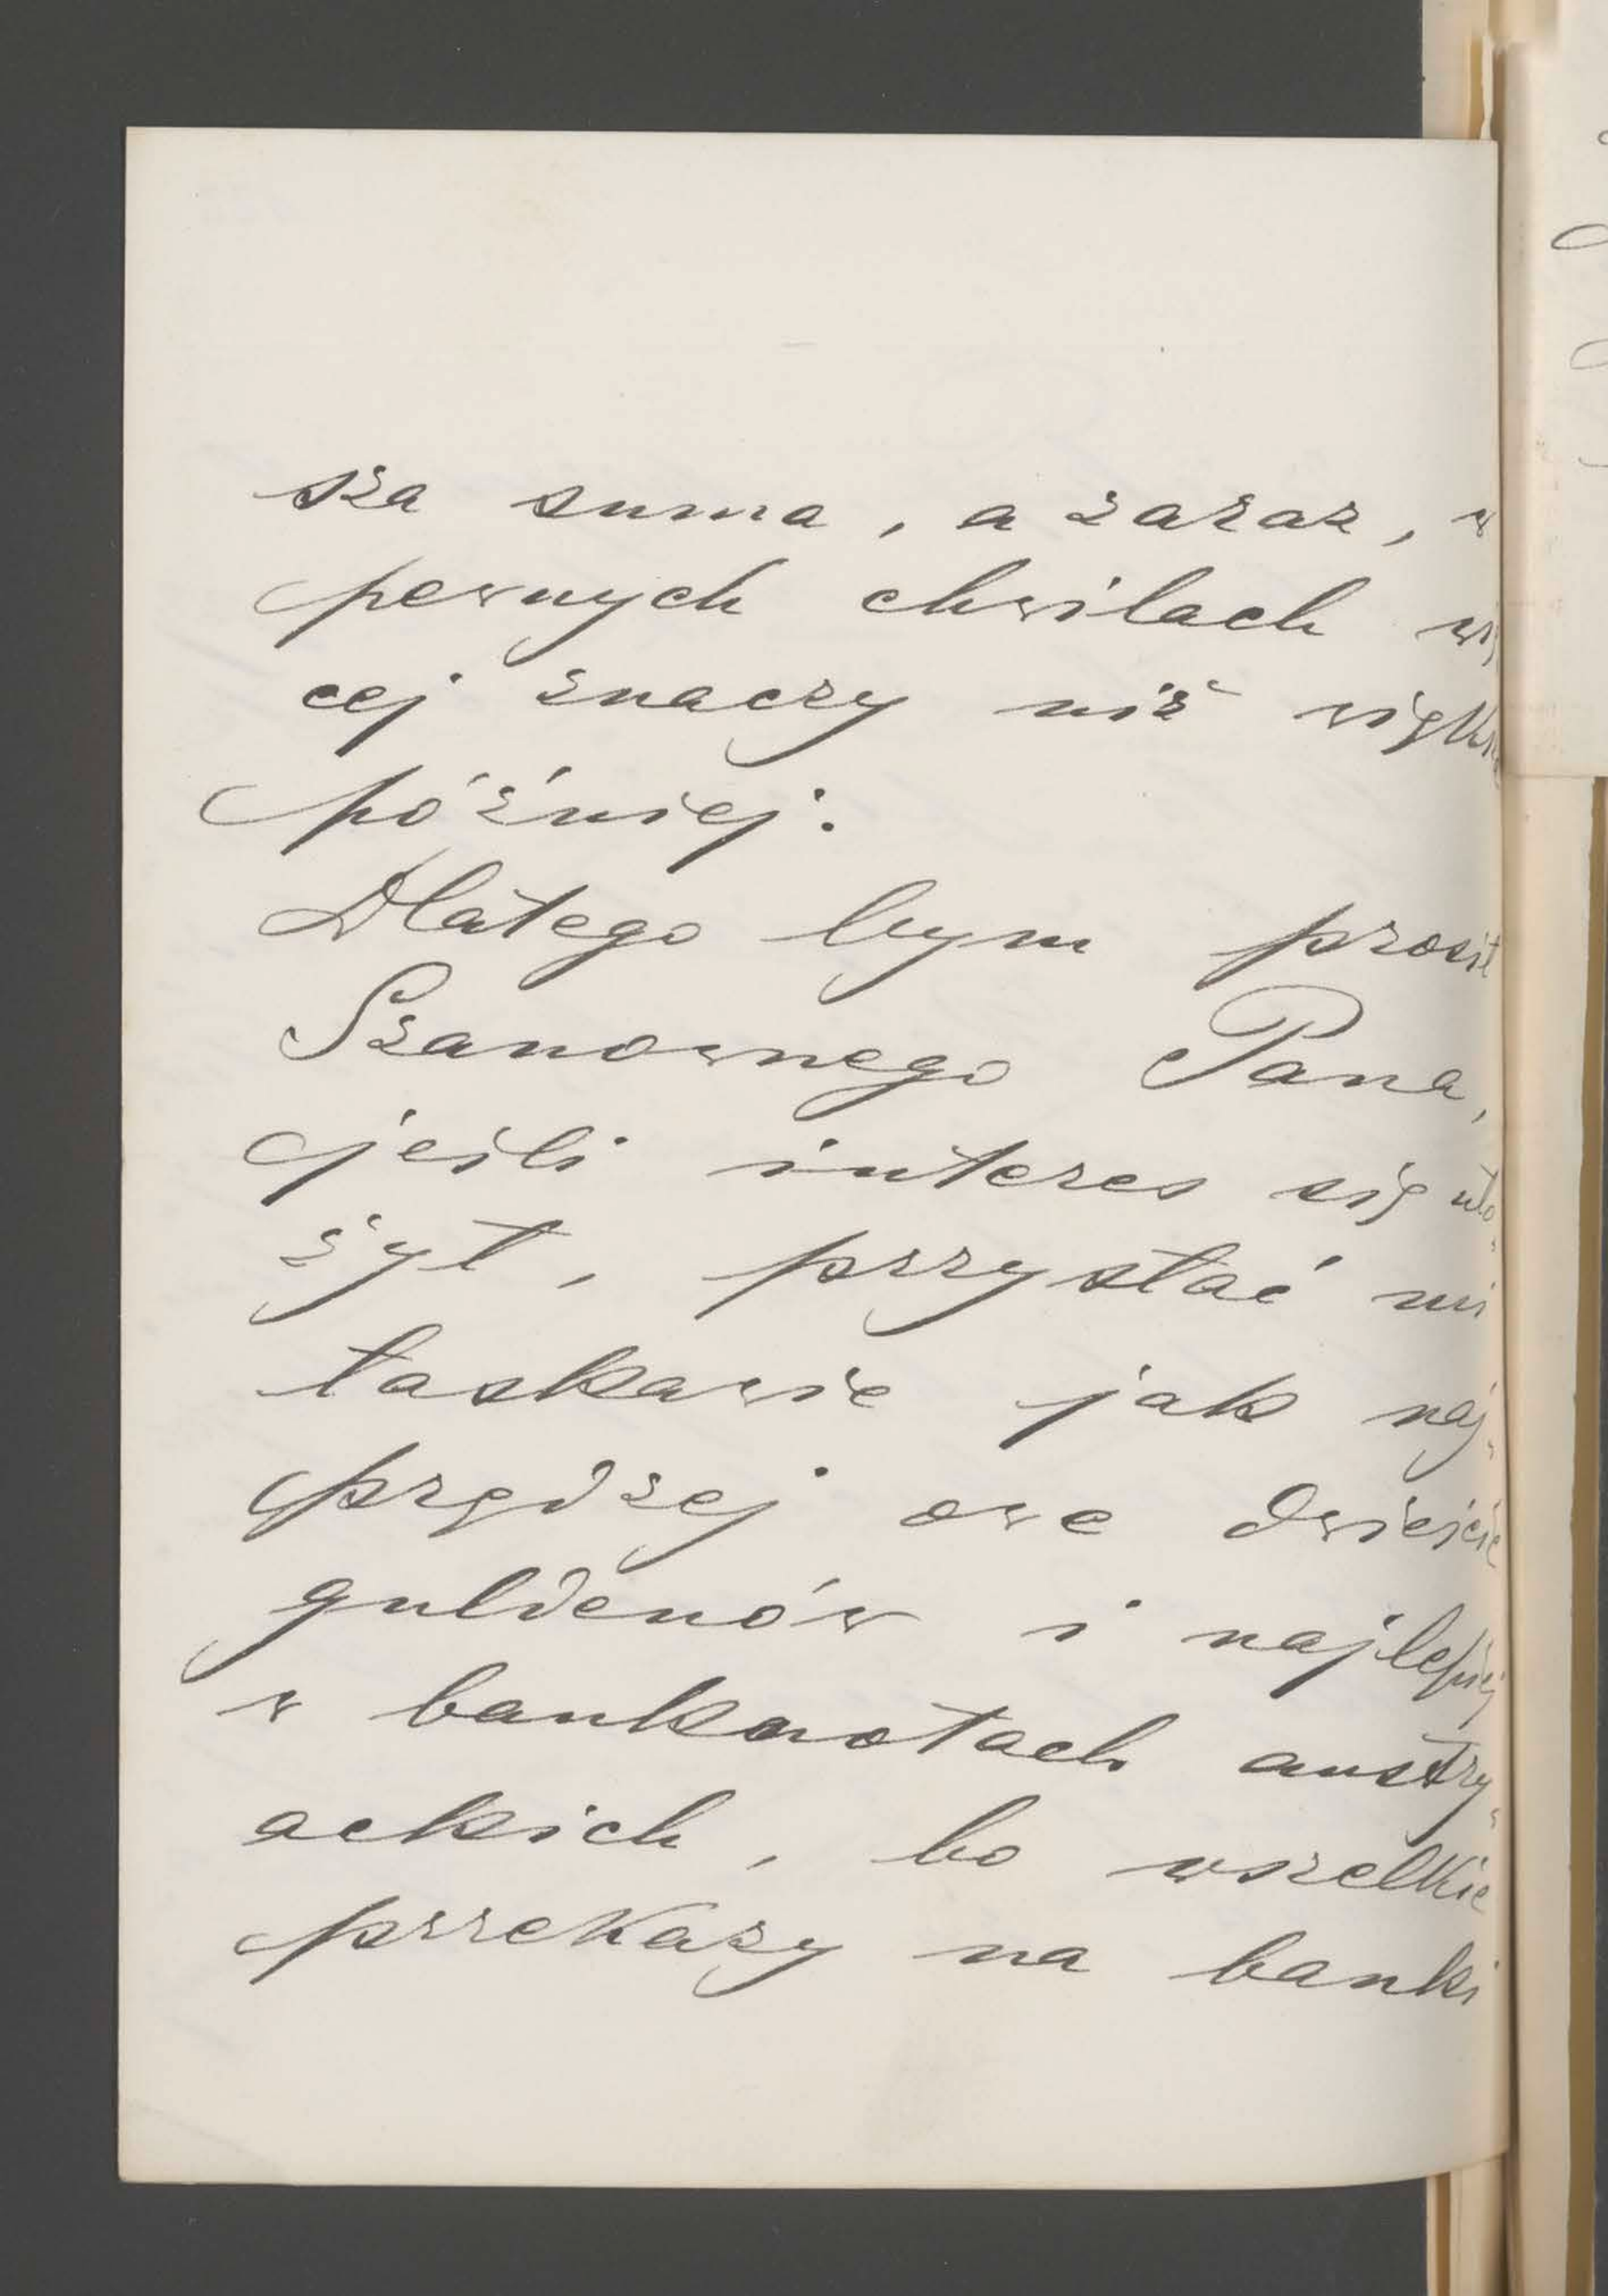 sza suma, a zaraz, w
pewnych chwilach wię
cej znaczy niż większa
później.
Dlatego bym prosił
Szanownego Pana,
jeśli interes się uło-
żył, przysłać mi
łaskawie jak naj-
prędzej owe dwieście
guldenów i najlepiej
w banknotach austry-
ackich, bo wszelkie
przekazy na banki